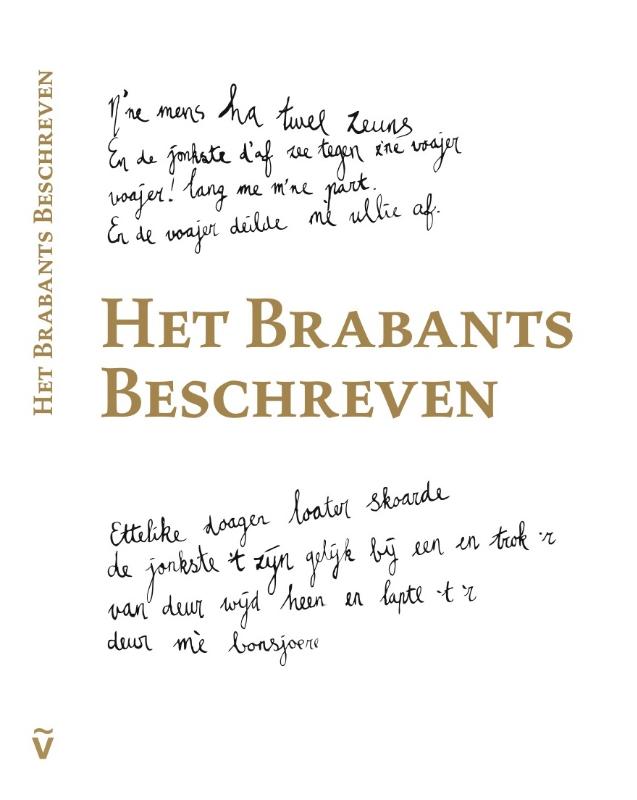 Het Brabants Beschreven
N'ne mens ha twel zeuns
En de jonkste d'af zee tegen z'ne voajer
voajer! lang me m'ne part.
En de voajer deilde mè ullie af.
Het Brabants
Beschreven
Ettelike doagen loater skoarde
de jonkste 't zijn gelijk bij een en trok 'r
van deur wijd heen en lapte 't 'r
deur mè bonsjoere
ṽ